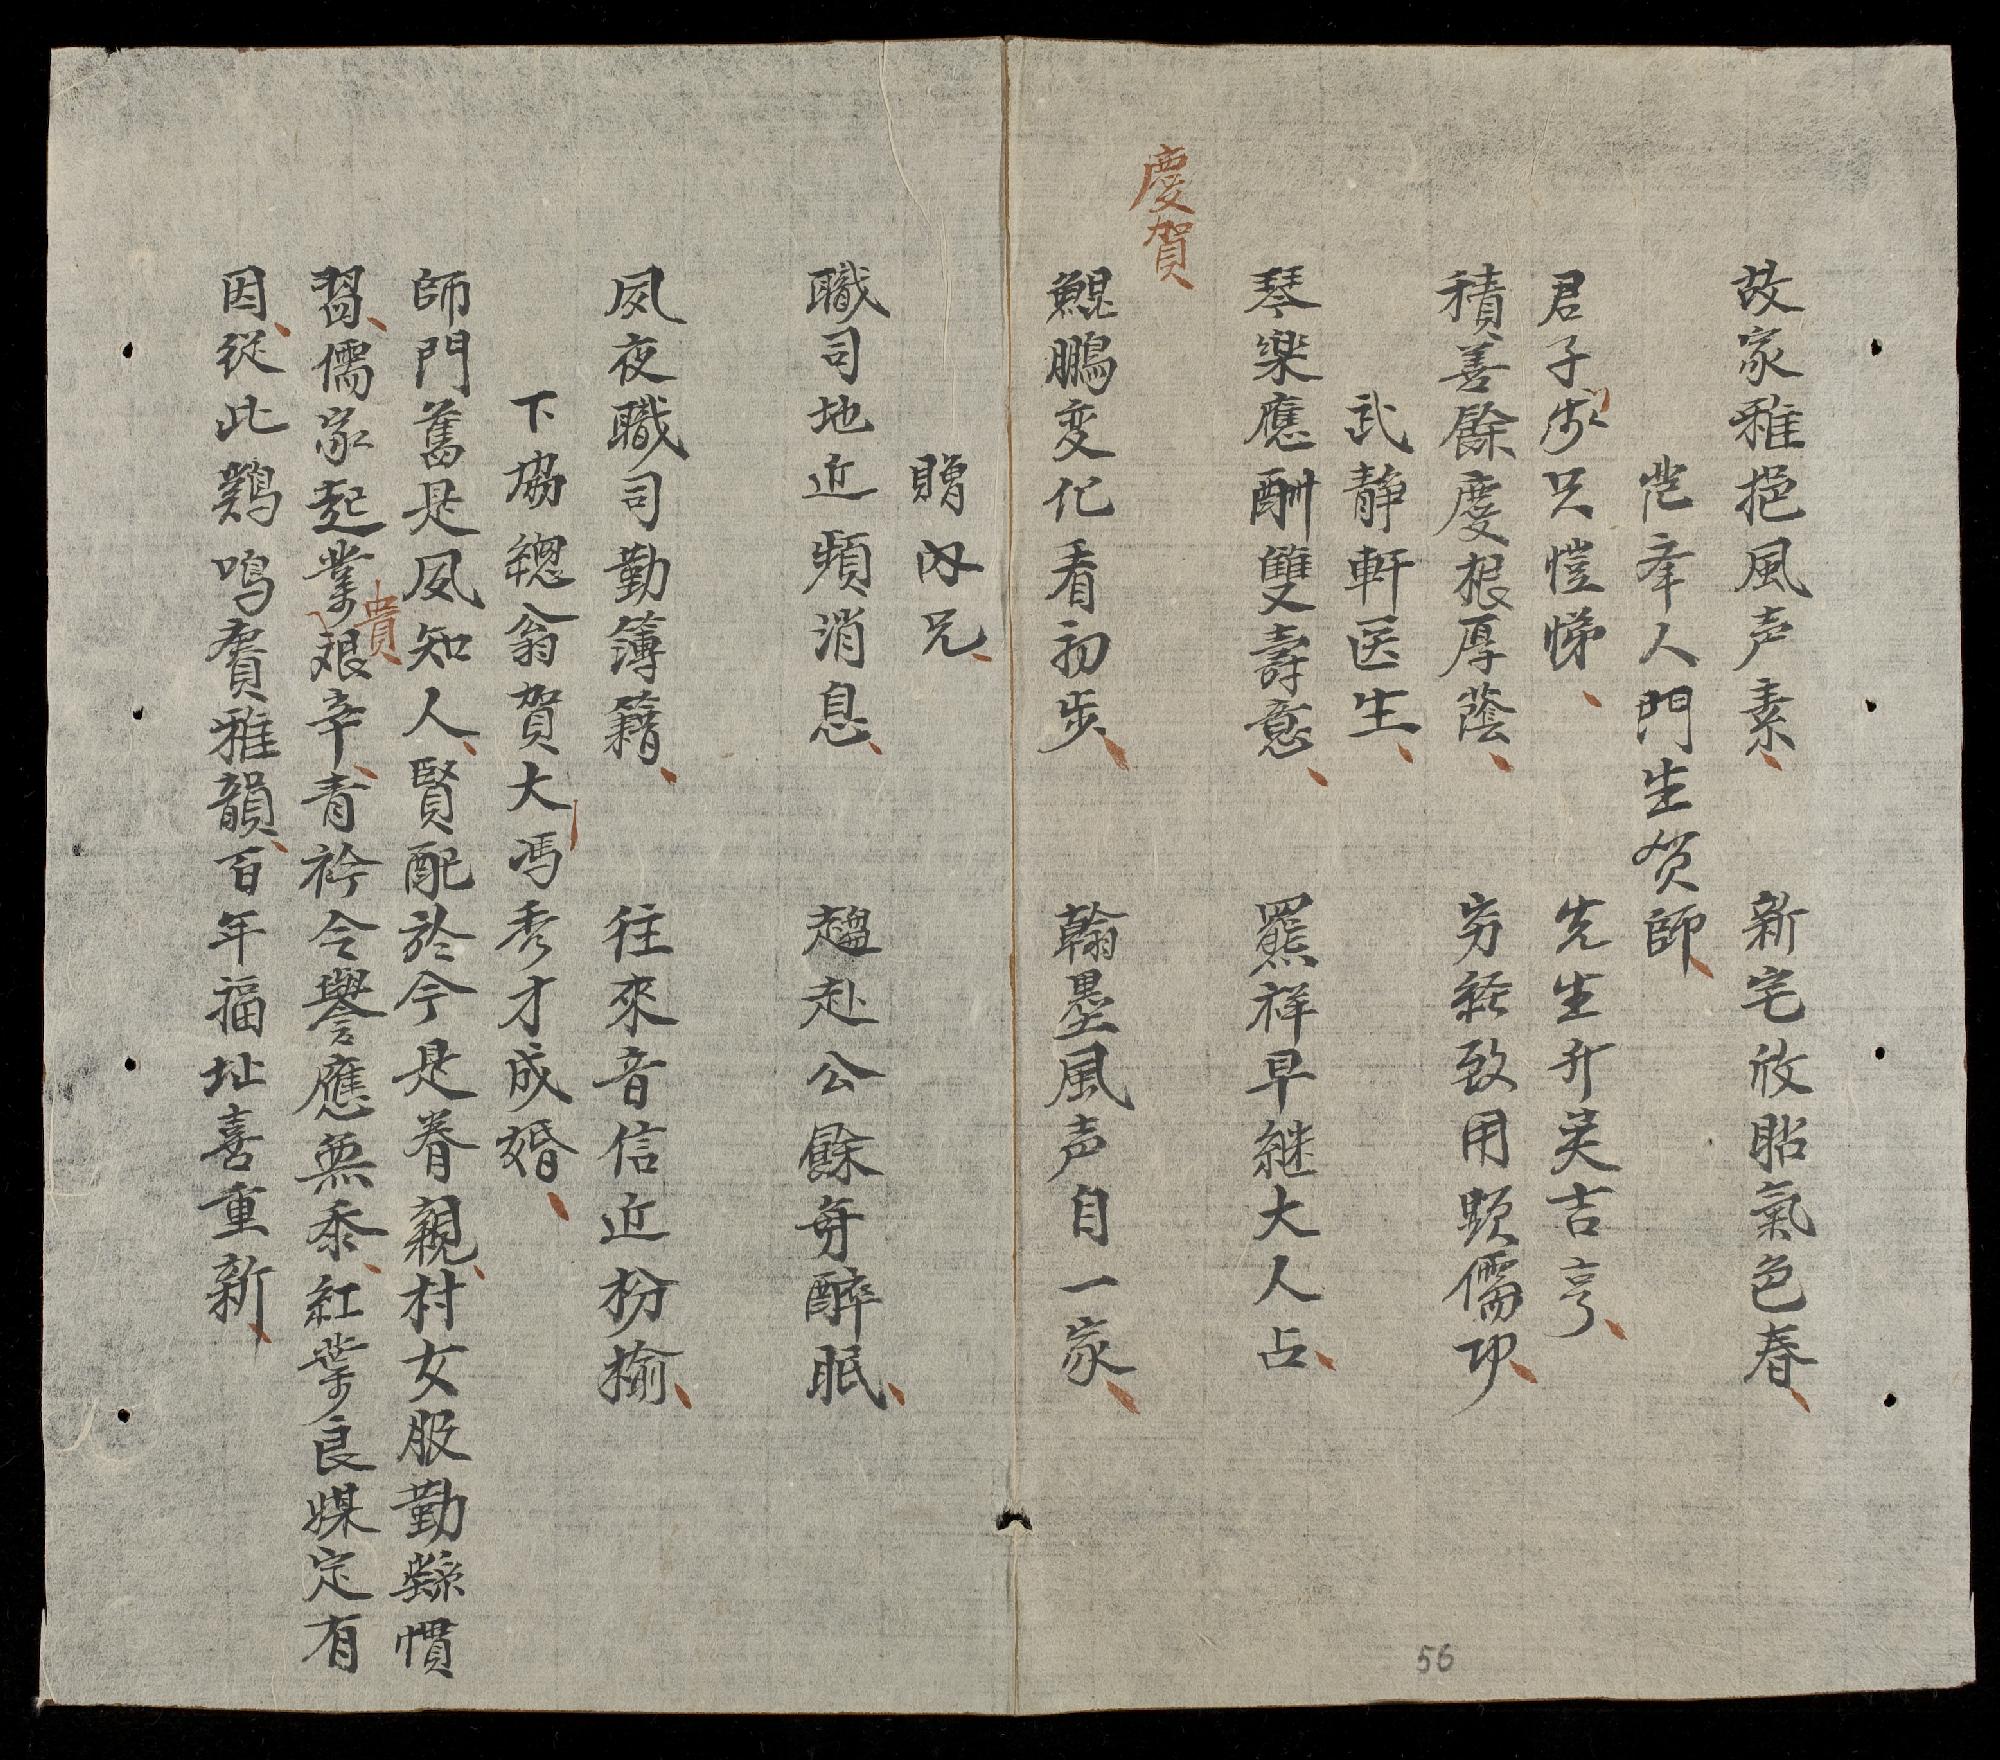 故家雅挹風声素 新宅攸昭氣色春
芘峯人門生贺師
君子步只愷悌 先生升吴吉亨
積善餘慶根厚蔭 穷経致用顕儒功
武静軒医生
琴樂應酬雙壽意 羆祥早継大人占
慶賀
鯤鵬変化看初步 翰墨風声自一家
贈内兄
職司地近頻消息 趨赴公餘每醉眠
夙夜職司勤簿籍 往來音信近枌榆
下協總翁賀大馮秀才成婚
師門舊是夙知人賢配於今是眷親村女服勤繇慣
習儒家起業艱辛青衿令譽應無忝紅葉良媒定有
貴
因從此鷄鳴賡雅韻百年福址喜重新
56